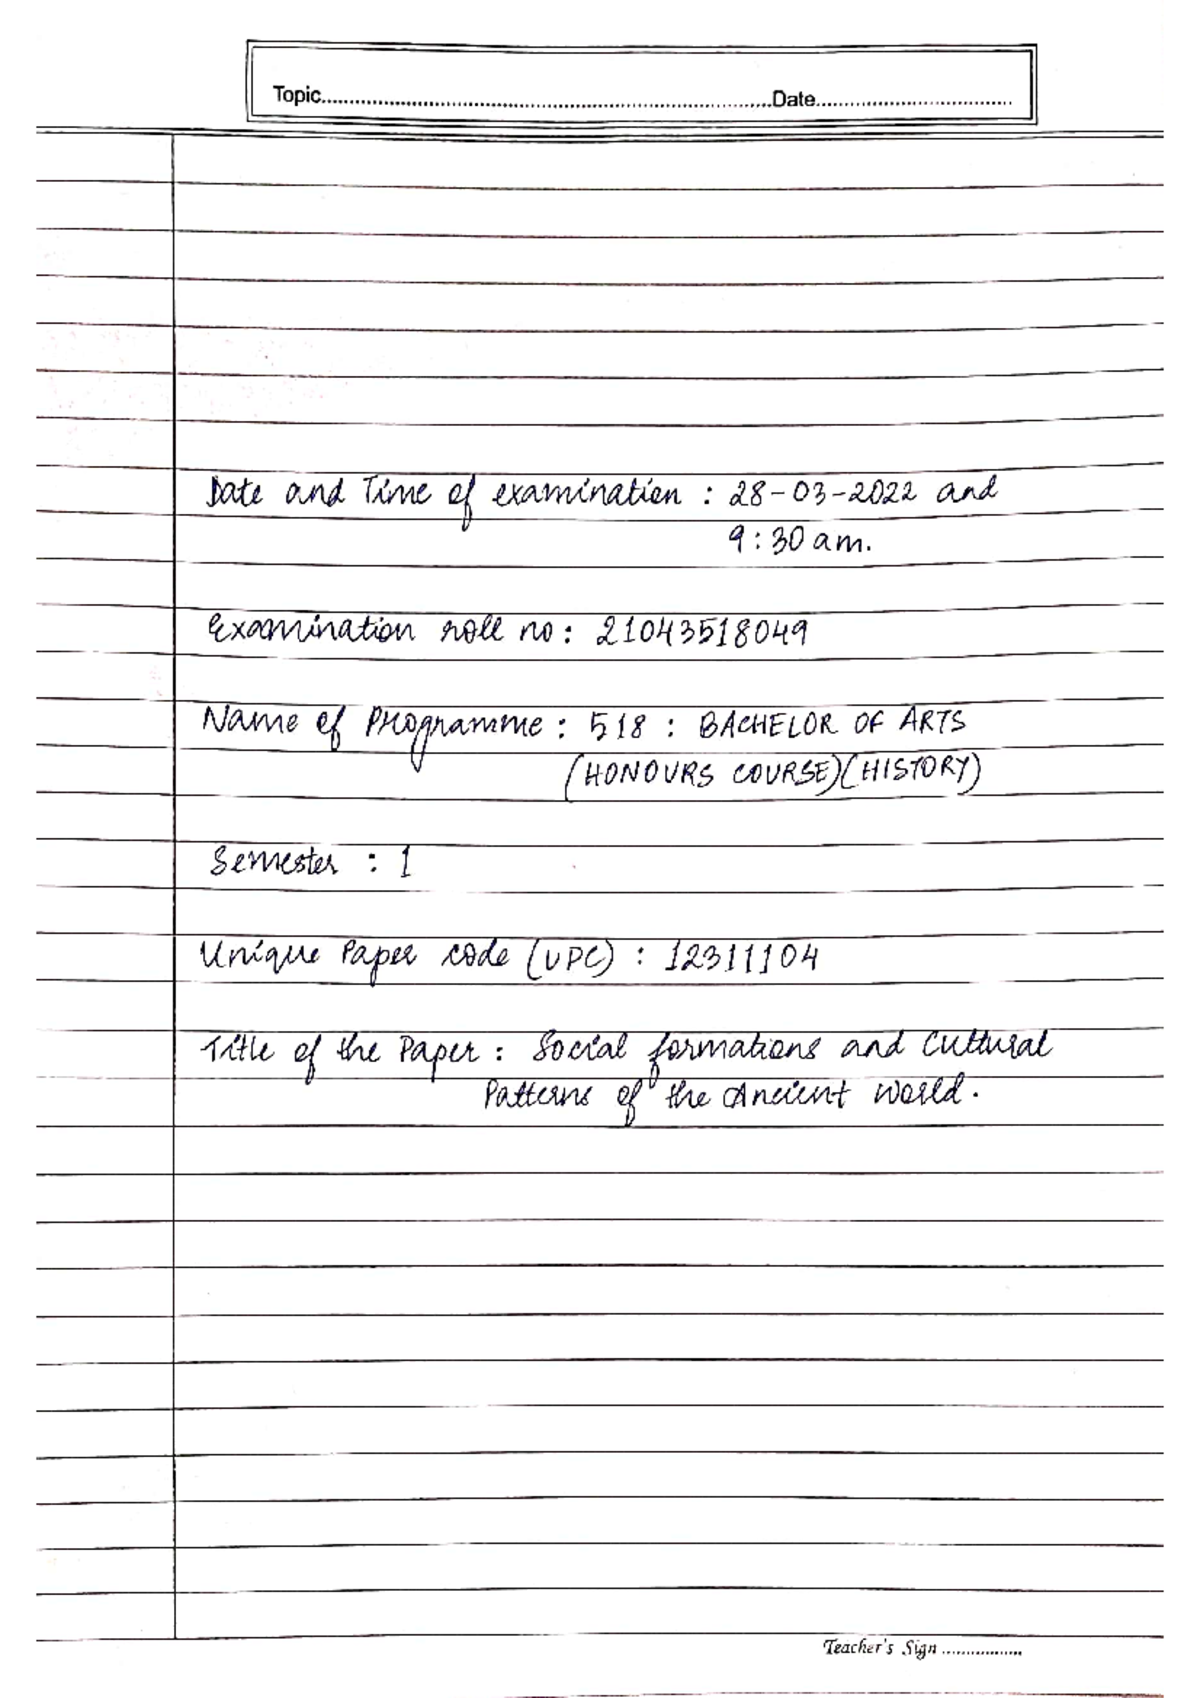 Topic.......................................................................................Date.......................................
Date and Time of examination : 28-03-2022 and
9:30 am.
Examination roll no : 21043518049
Name of Programme : 518 : BACHELOR OF ARTS
(HONOURS COURSE)(HISTORY)
Semester : 1
Unique Paper code (UPC) : 12311104
Title of the Paper : Social formations and Cultural
Patterns of the Ancient World.
Teacher's Sign .................